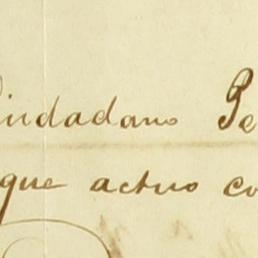 iudadano Pe
que actuo co